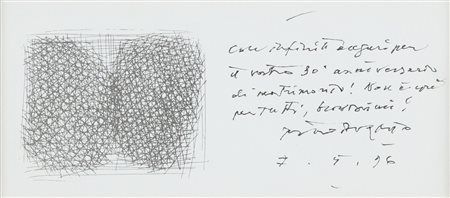 Con infiniti auguri per
il vostro 30° anniversario
di matrimonio! Non è
per tutti,
Piero Dorazio
7 . 5 . 96